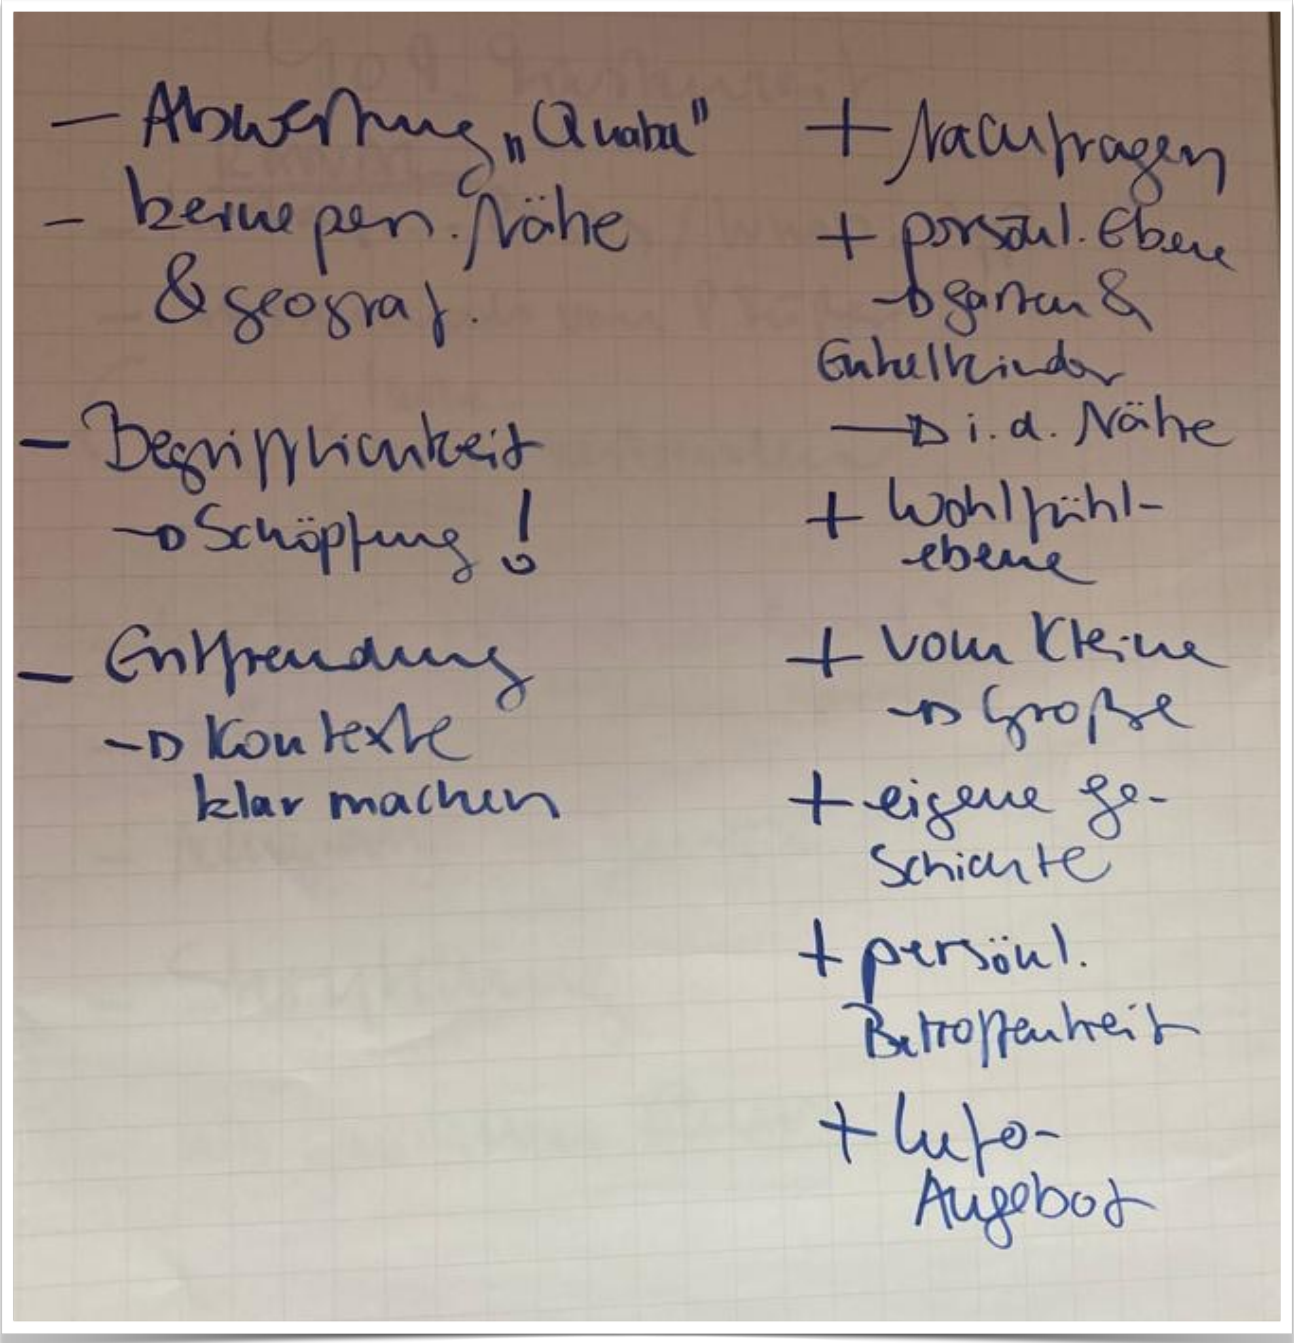 - Abwertung „Quaba"
- keine pers. Nähe
& geograf.
- Begrifflichkeit
→ Schöpfung !
- Entfremdung
→ Kontexte
klar machen
+ Nachfragen
+ persönl. Ebene
→ Garten &
Enkelkinder
→ i.d. Nähe
+ Wohlfühl-
ebene
+ vom Kleine
→ Große
+ eigene Ge-
schichte
+ persönl.
Betroffenheit
+ Info-
Angebot